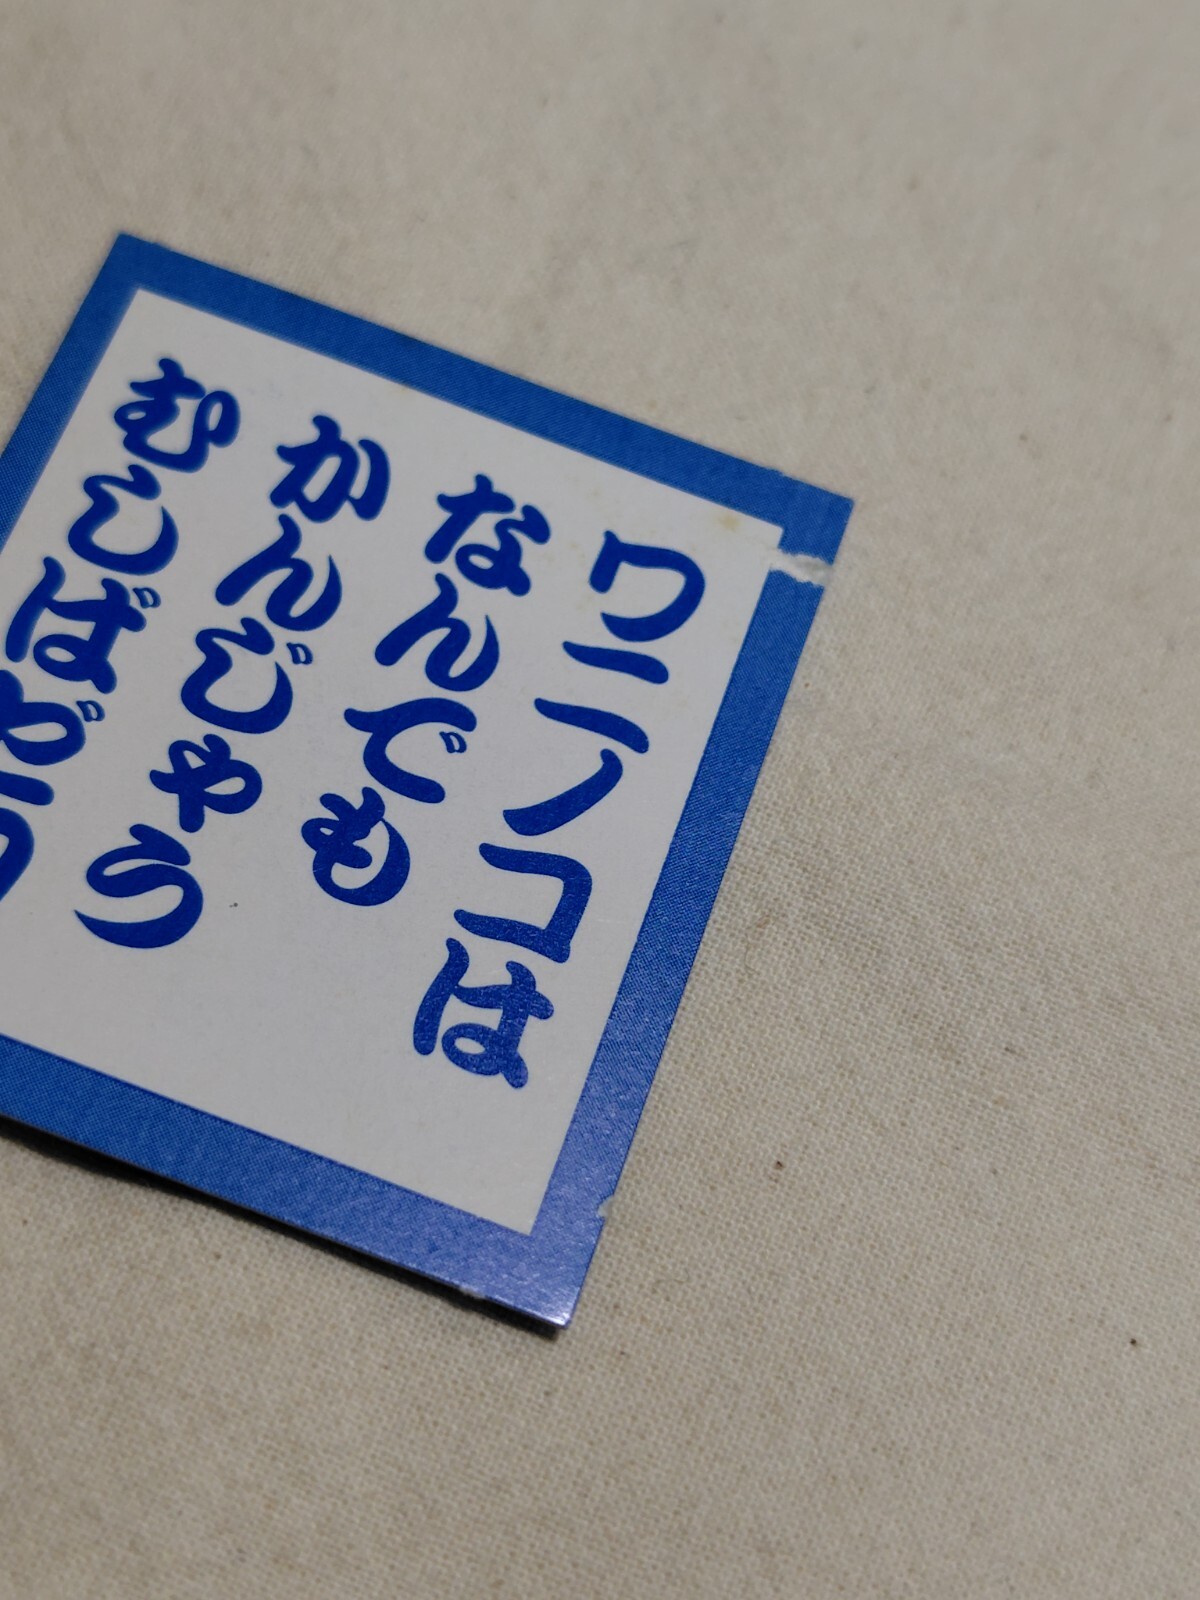 ワニノコは
なんでも
かんじゃう
むしばや